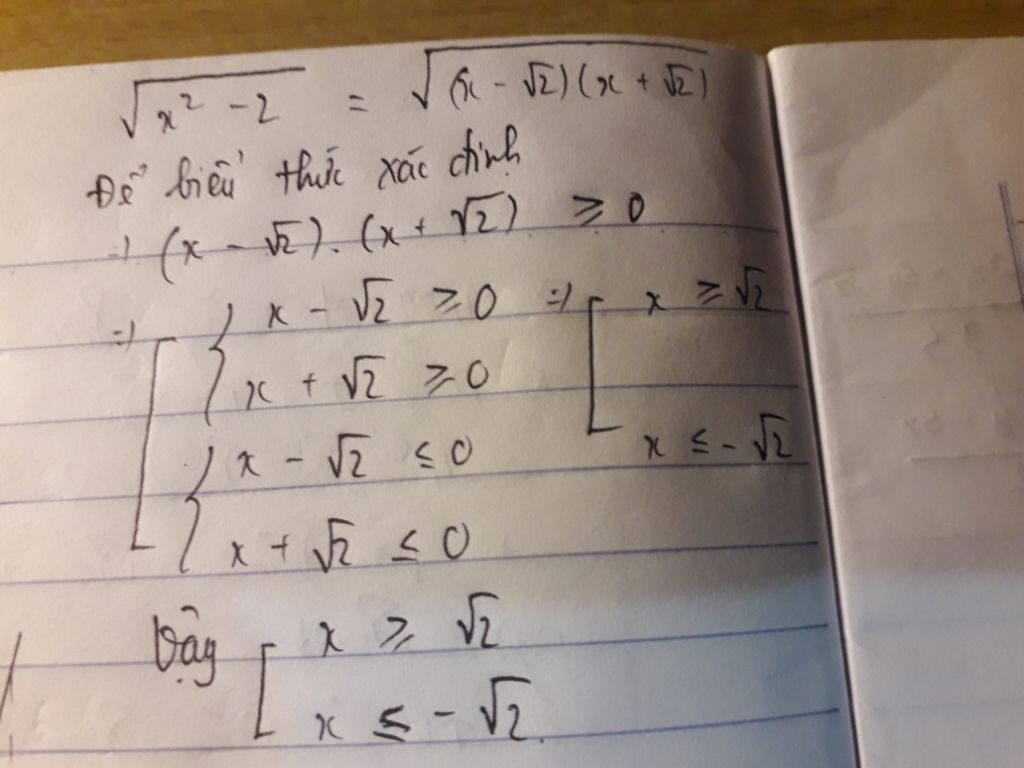 √(x² - 2) = √((x - √2)(x + √2))
Để biểu thức xác định
=> (x - √2). (x + √2) ≥ 0
=> [ { x - √2 ≥ 0 => [ x ≥ √2
x + √2 ≥ 0
{ x - √2 ≤ 0 x ≤ - √2
x + √2 ≤ 0
Vậy [ x ≥ √2
x ≤ - √2.